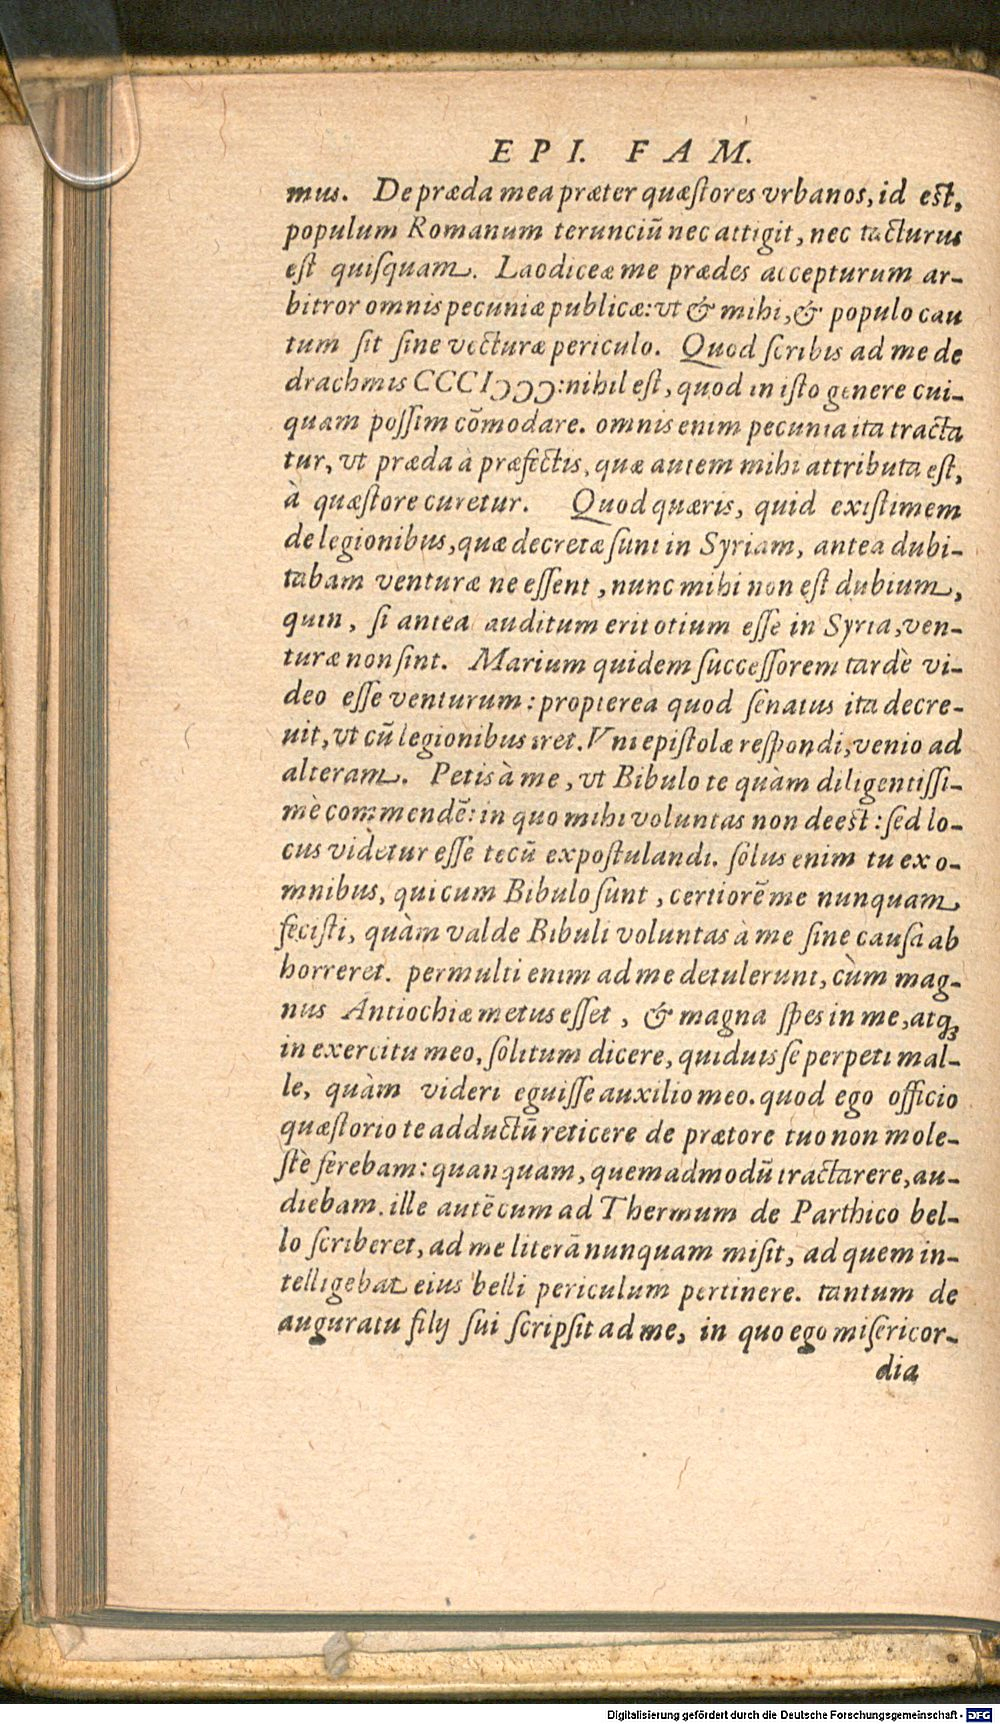 EPI. FAM.
mus. De præda mea præter quæſtores vrbanos, id eſt,
populum Romanum terunciũ nec attigit, nec tacturus
eſt quiſquam. Laodiceæ me prædes accepturum ar-
bitror omnis pecuniæ publicæ: vt & mihi, & populo cau
tum ſit ſine vecturæ periculo. Quod ſcribis ad me de
drachmis CCCIↃↃↃ: nihil eſt, quod in iſto genere cui-
quam poſſim cõmodare. omnis enim pecunia ita tracta
tur, vt præda à præfectis, quæ autem mihi attributa eſt,
à quæſtore curetur. Quod quæris, quid exiſtimem
de legionibus, quæ decretæ ſunt in Syriam, antea dubi-
tabam venturæ ne eſſent, nunc mihi non eſt dubium,
quin, ſi antea auditum erit otium eſſe in Syria, ven-
turæ non ſint. Marium quidem ſucceſſorem tardè vi-
deo eſſe venturum: propterea quod ſenatus ita decre-
uit, vt cũ legionibus iret. Vni epiſtolæ reſpondi, venio ad
alteram. Petis à me, vt Bibulo te quàm diligentiſſi-
mè commendẽ: in quo mihi voluntas non deeſt: ſed lo-
cus videtur eſſe tecũ expoſtulandi. ſolus enim tu ex o-
mnibus, qui cum Bibulo ſunt, certiorẽ me nunquam
feciſti, quàm valde Bibuli voluntas à me ſine cauſa ab
horreret. permulti enim ad me detulerunt, cùm mag-
nus Antiochiæ metus eſſet, & magna ſpes in me, atq;
in exercitu meo, ſolitum dicere, quiduis ſe perpeti mal-
le, quàm videri eguiſſe auxilio meo. quod ego officio
quæſtorio te adductũ reticere de prætore tuo non mole-
ſtè ferebam: quanquam, quemadmodũ tractarere, au-
diebam. ille autẽ cum ad Thermum de Parthico bel-
lo ſcriberet, ad me literã nunquam miſit, ad quem in-
telligebat eius belli periculum pertinere. tantum de
auguratu filij ſui ſcripſit ad me, in quo ego miſericor-
dia
Digitalisierung gefördert durch die Deutsche Forschungsgemeinschaft - DFG